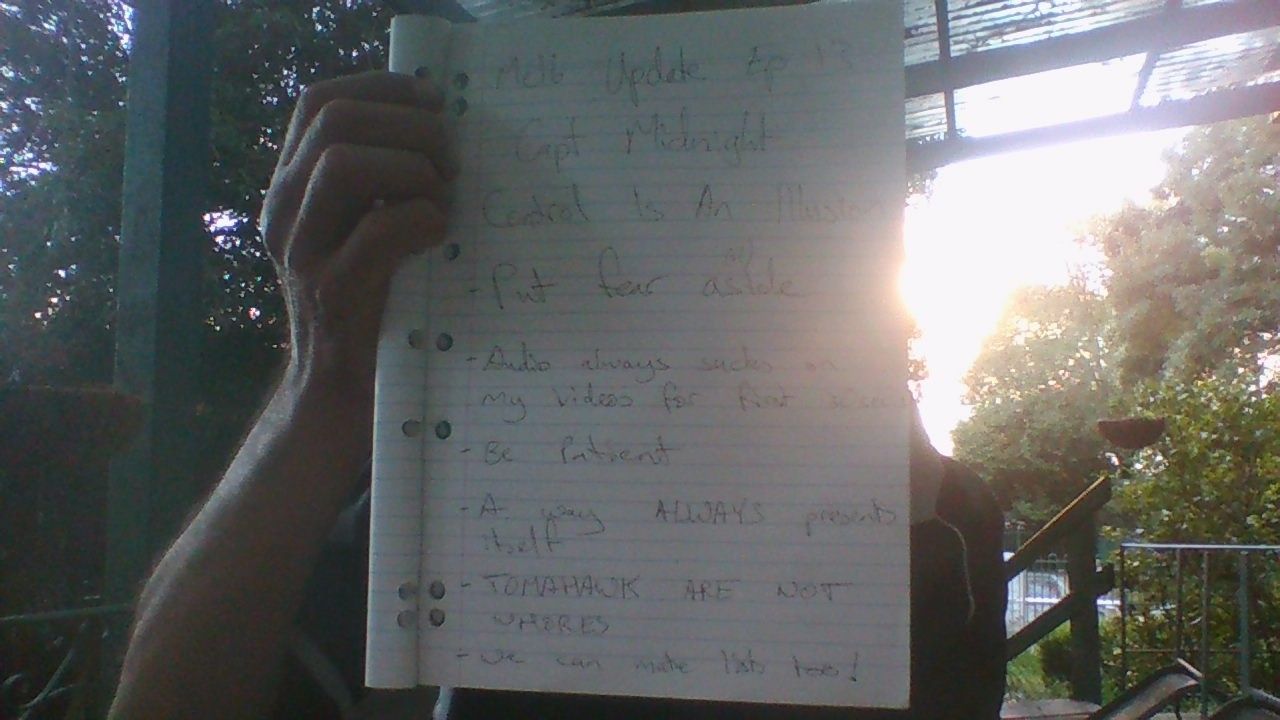 Melb Update Apr 13
Capt Midnight
Control Is An Illusion
- Put fear aside
- Audio always sucks on
my videos for first
- Be Patient
- A way ALWAYS presents
itself
- TOMAHAWK ARE NOT
- we can make lists too!